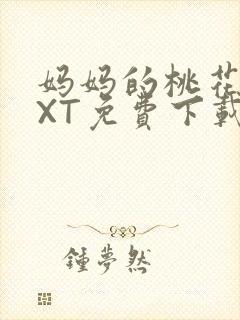 妈妈的桃花
XT免费下载
锺夢然